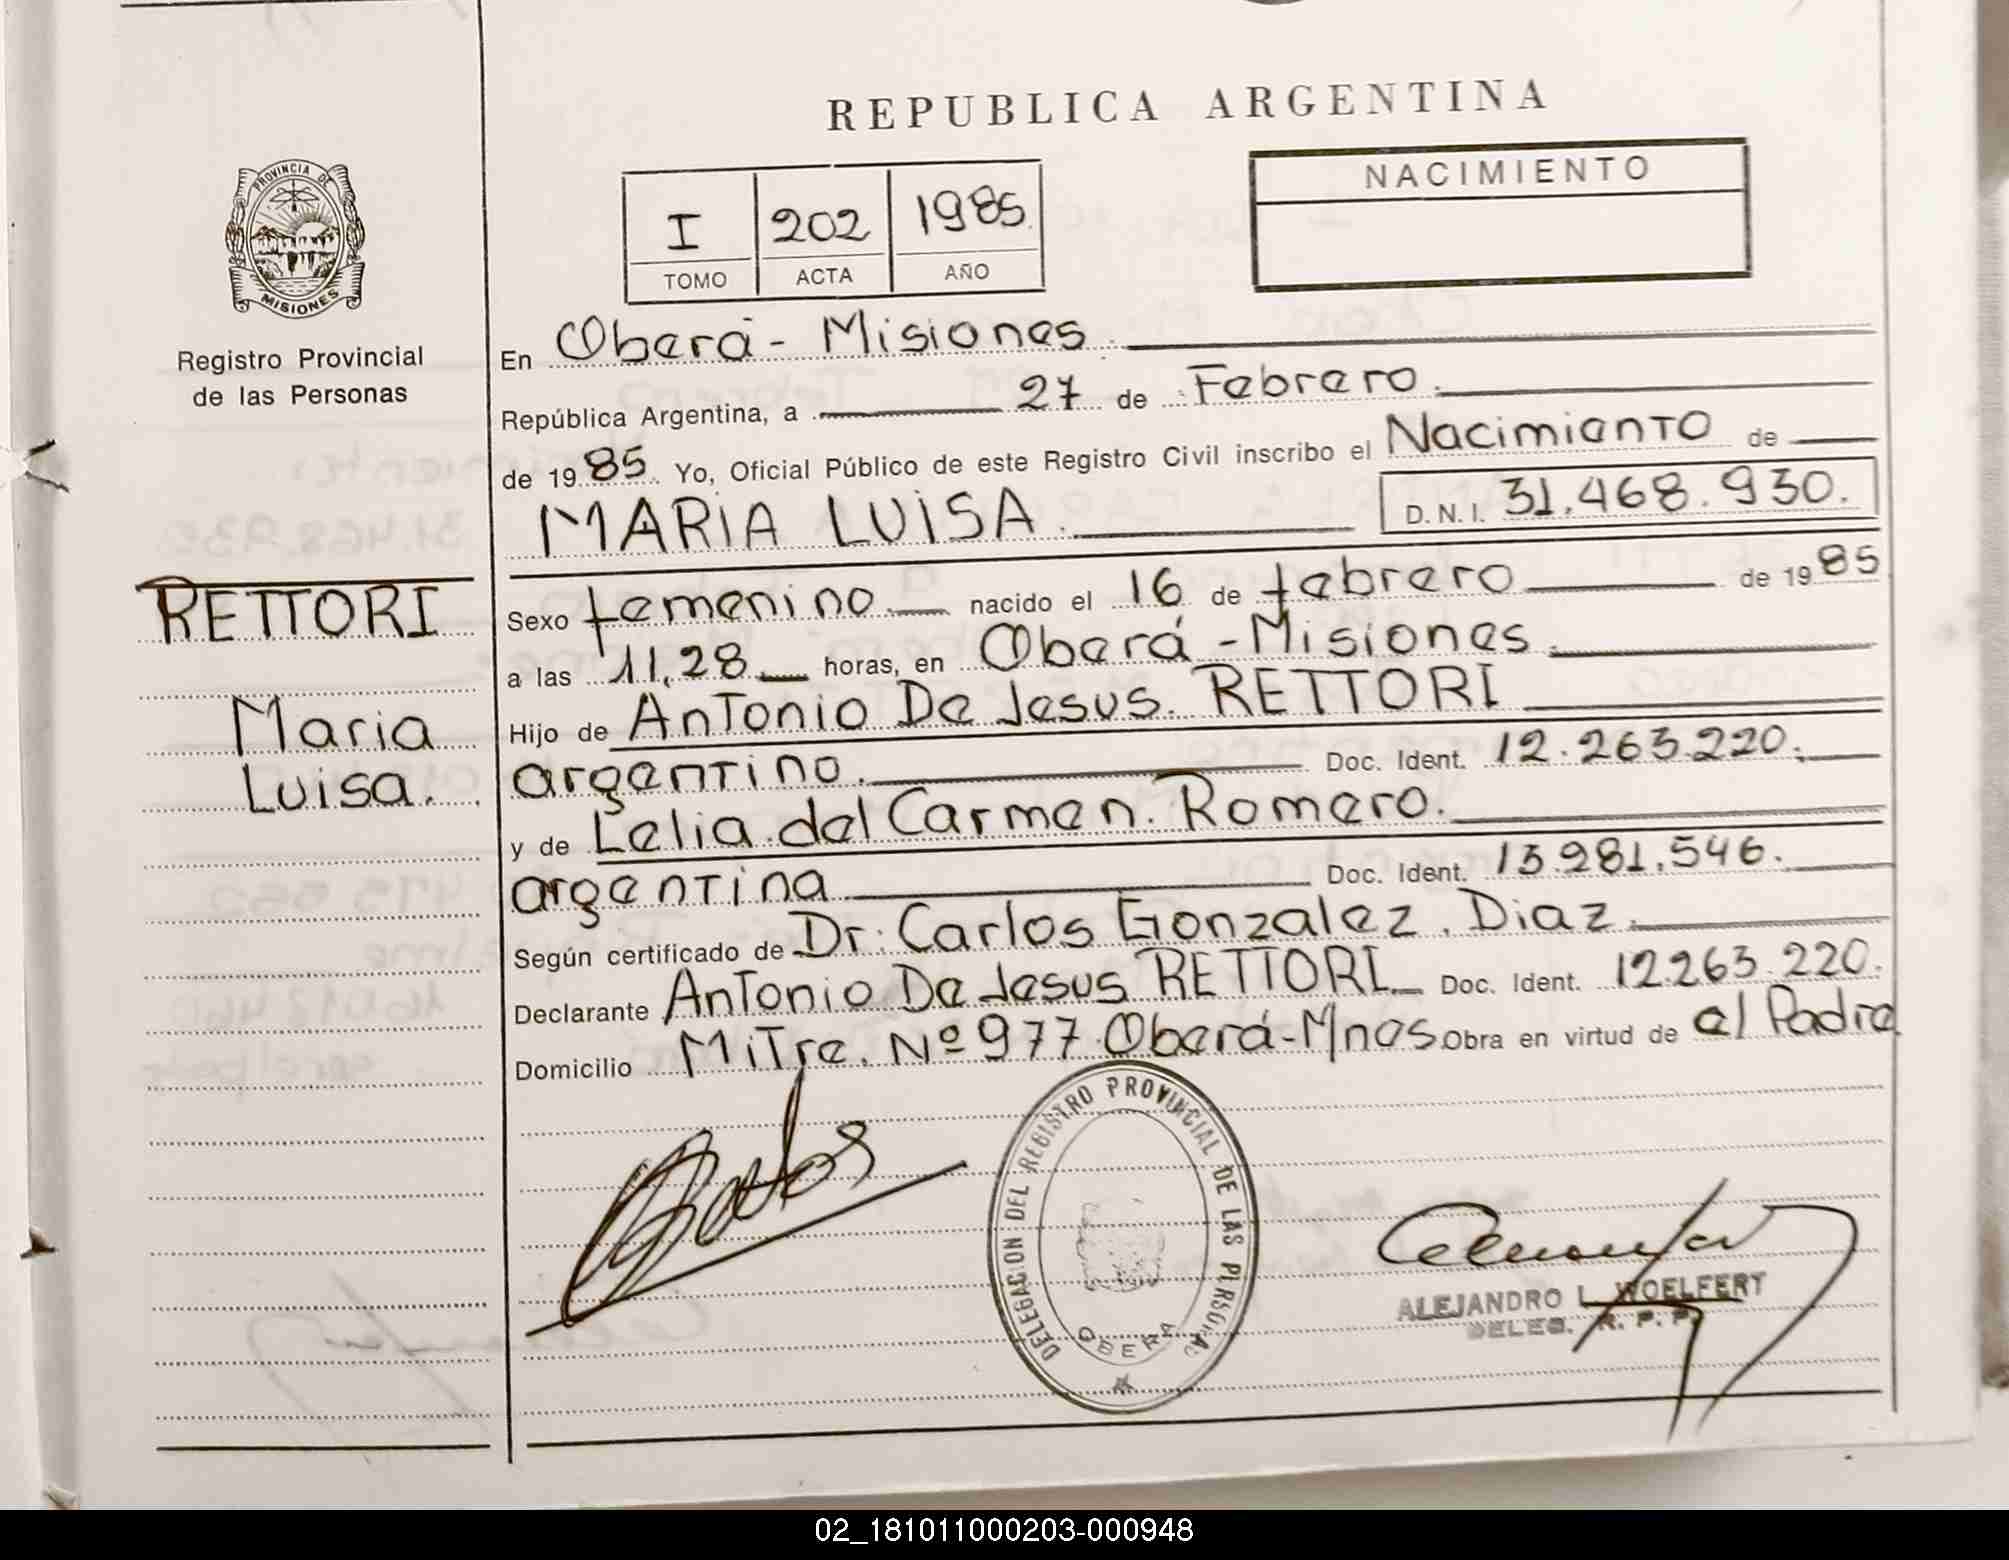 REPUBLICA ARGENTINA
PROVINCIA DE
MISIONES
Registro Provincial
de las Personas
I 202 1985
TOMO ACTA AÑO
NACIMIENTO
En Oberá - Misiones
República Argentina, a 27 de Febrero.
de 1985. Yo, Oficial Público de este Registro Civil inscribo el Nacimiento de
MARIA LUISA. D.N.I. 31.468.930.
RETTORI
Maria
Luisa.
Sexo femenino nacido el 16 de febrero de 1985
a las 11,28 horas, en Oberá - Misiones
Hijo de Antonio De Jesus. RETTORI
argentino. Doc. Ident. 12.263.220.
y de Lelia del Carmen. Romero.
argentina Doc. Ident. 13.981.546.
Según certificado de Dr. Carlos Gonzalez. Diaz.
Declarante Antonio De Jesus RETTORI Doc. Ident. 12.263.220.
Domicilio Mitre. Nº 977 Oberá-Mnes. Obra en virtud de el Padre
DELEGACION DEL REGISTRO PROVINCIAL DE LAS PERSONAS
OBERA
ALEJANDRO L. WOELFERT
DELEG. R. P. P.
02_181011000203-000948